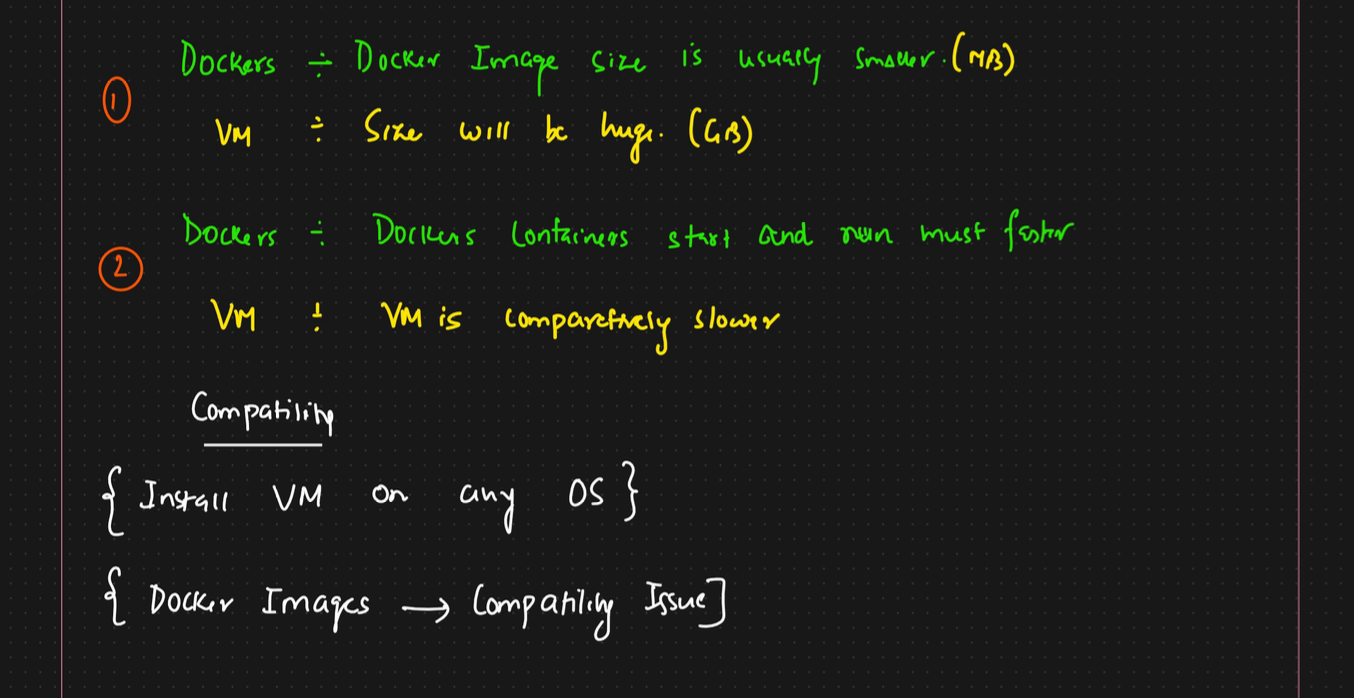 ① Dockers ÷ Docker Image size is usually smaller. (MB)
VM ÷ Size will be huge. (GB)
② Dockers ÷ Dockers Containers start and run must faster
VM ÷ VM is comparetively slower
Compatility
{ Install VM on any OS }
{ Docker Images → Compatility Issue ]